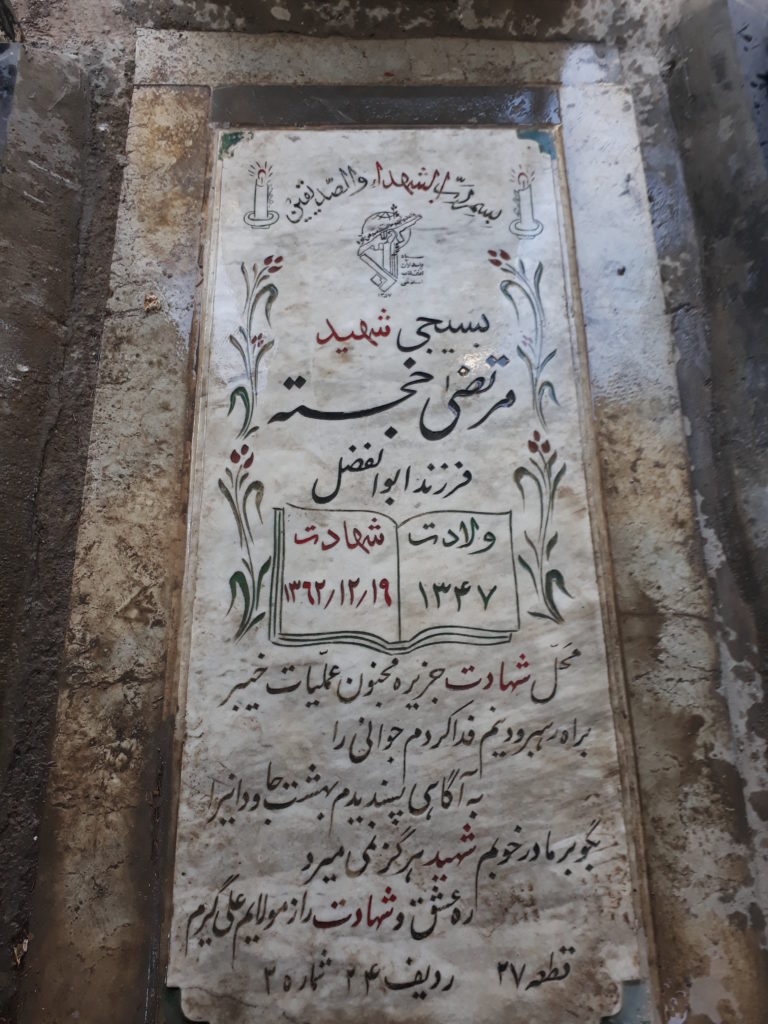 بسم رب الشهداء والصدیقین
سپاه
پاسداران
انقلاب
اسلامی
۱۳۵۷
بسیجی شهید
مرتضی خجسته
فرزند ابوالفضل
ولادت شهادت
۱۳۴۷ ۱۳۶۲/۱۲/۱۹
محل شهادت جزیره مجنون عملیات خیبر
براه رهبر و دینم فدا کردم جوانی را
به آگاهی پسندیدم بهشت جاودانیرا
بگو بر مادر خوبم شهید هرگز نمی میرد
ره عشق و شهادت را ز مولایم علی گیرم
قطعه ۲۷ ردیف ۲۴ شماره ۲